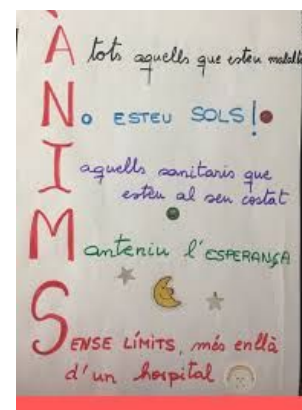 À tots aquells que esteu malalts
No ESTEU SOLS!
I aquells sanitaris que
esteu al seu costat
Manteniu l'ESPERANÇA
SENSE LÍMITS, més enllà
d'un hospital